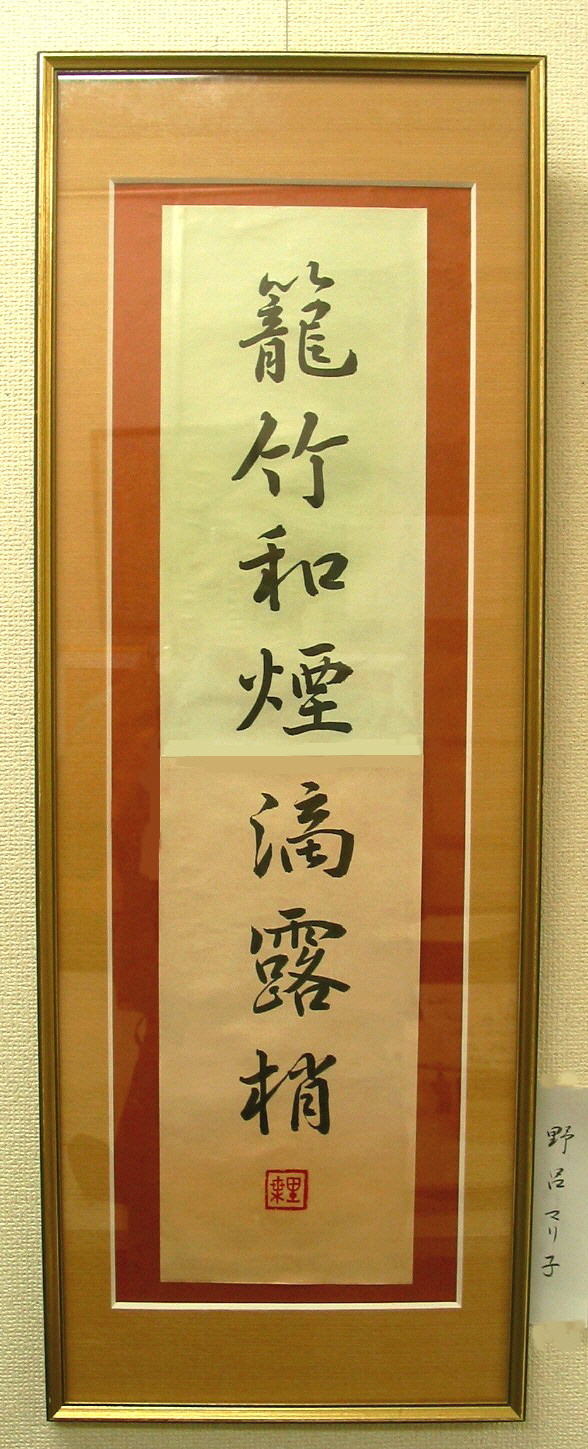 籠竹和煙滴露梢
野呂マリ子